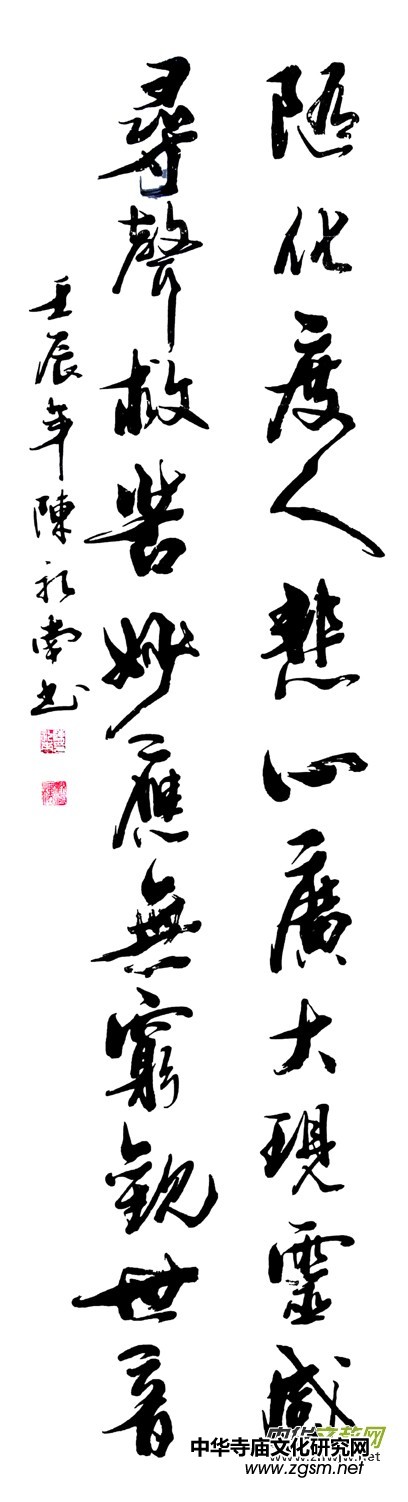 隨化度人悲心廣大現靈感
尋聲救苦妙應無窮觀世音
壬辰年陳 书
中华寺庙文化研究网
www.zgsm.net